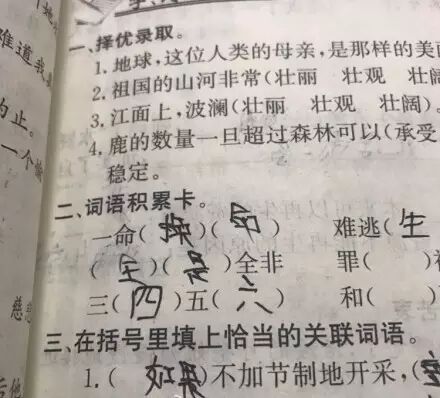 一、择优录取。
1. 地球,这位人类的母亲,是那样的美
2. 祖国的山河非常(壮丽 壮观 壮阔
3. 江面上,波澜(壮丽 壮观 壮阔)。
4. 鹿的数量一旦超过森林可以(承受
稳定。
二、词语积累卡。
一命( )( ) 难逃(生
(全)( )全非 罪( )
三(四)五(六) 和( )
三、在括号里填上恰当的关联词语。
1.(如果)不加节制地开采,(
难道我
为止。
一个